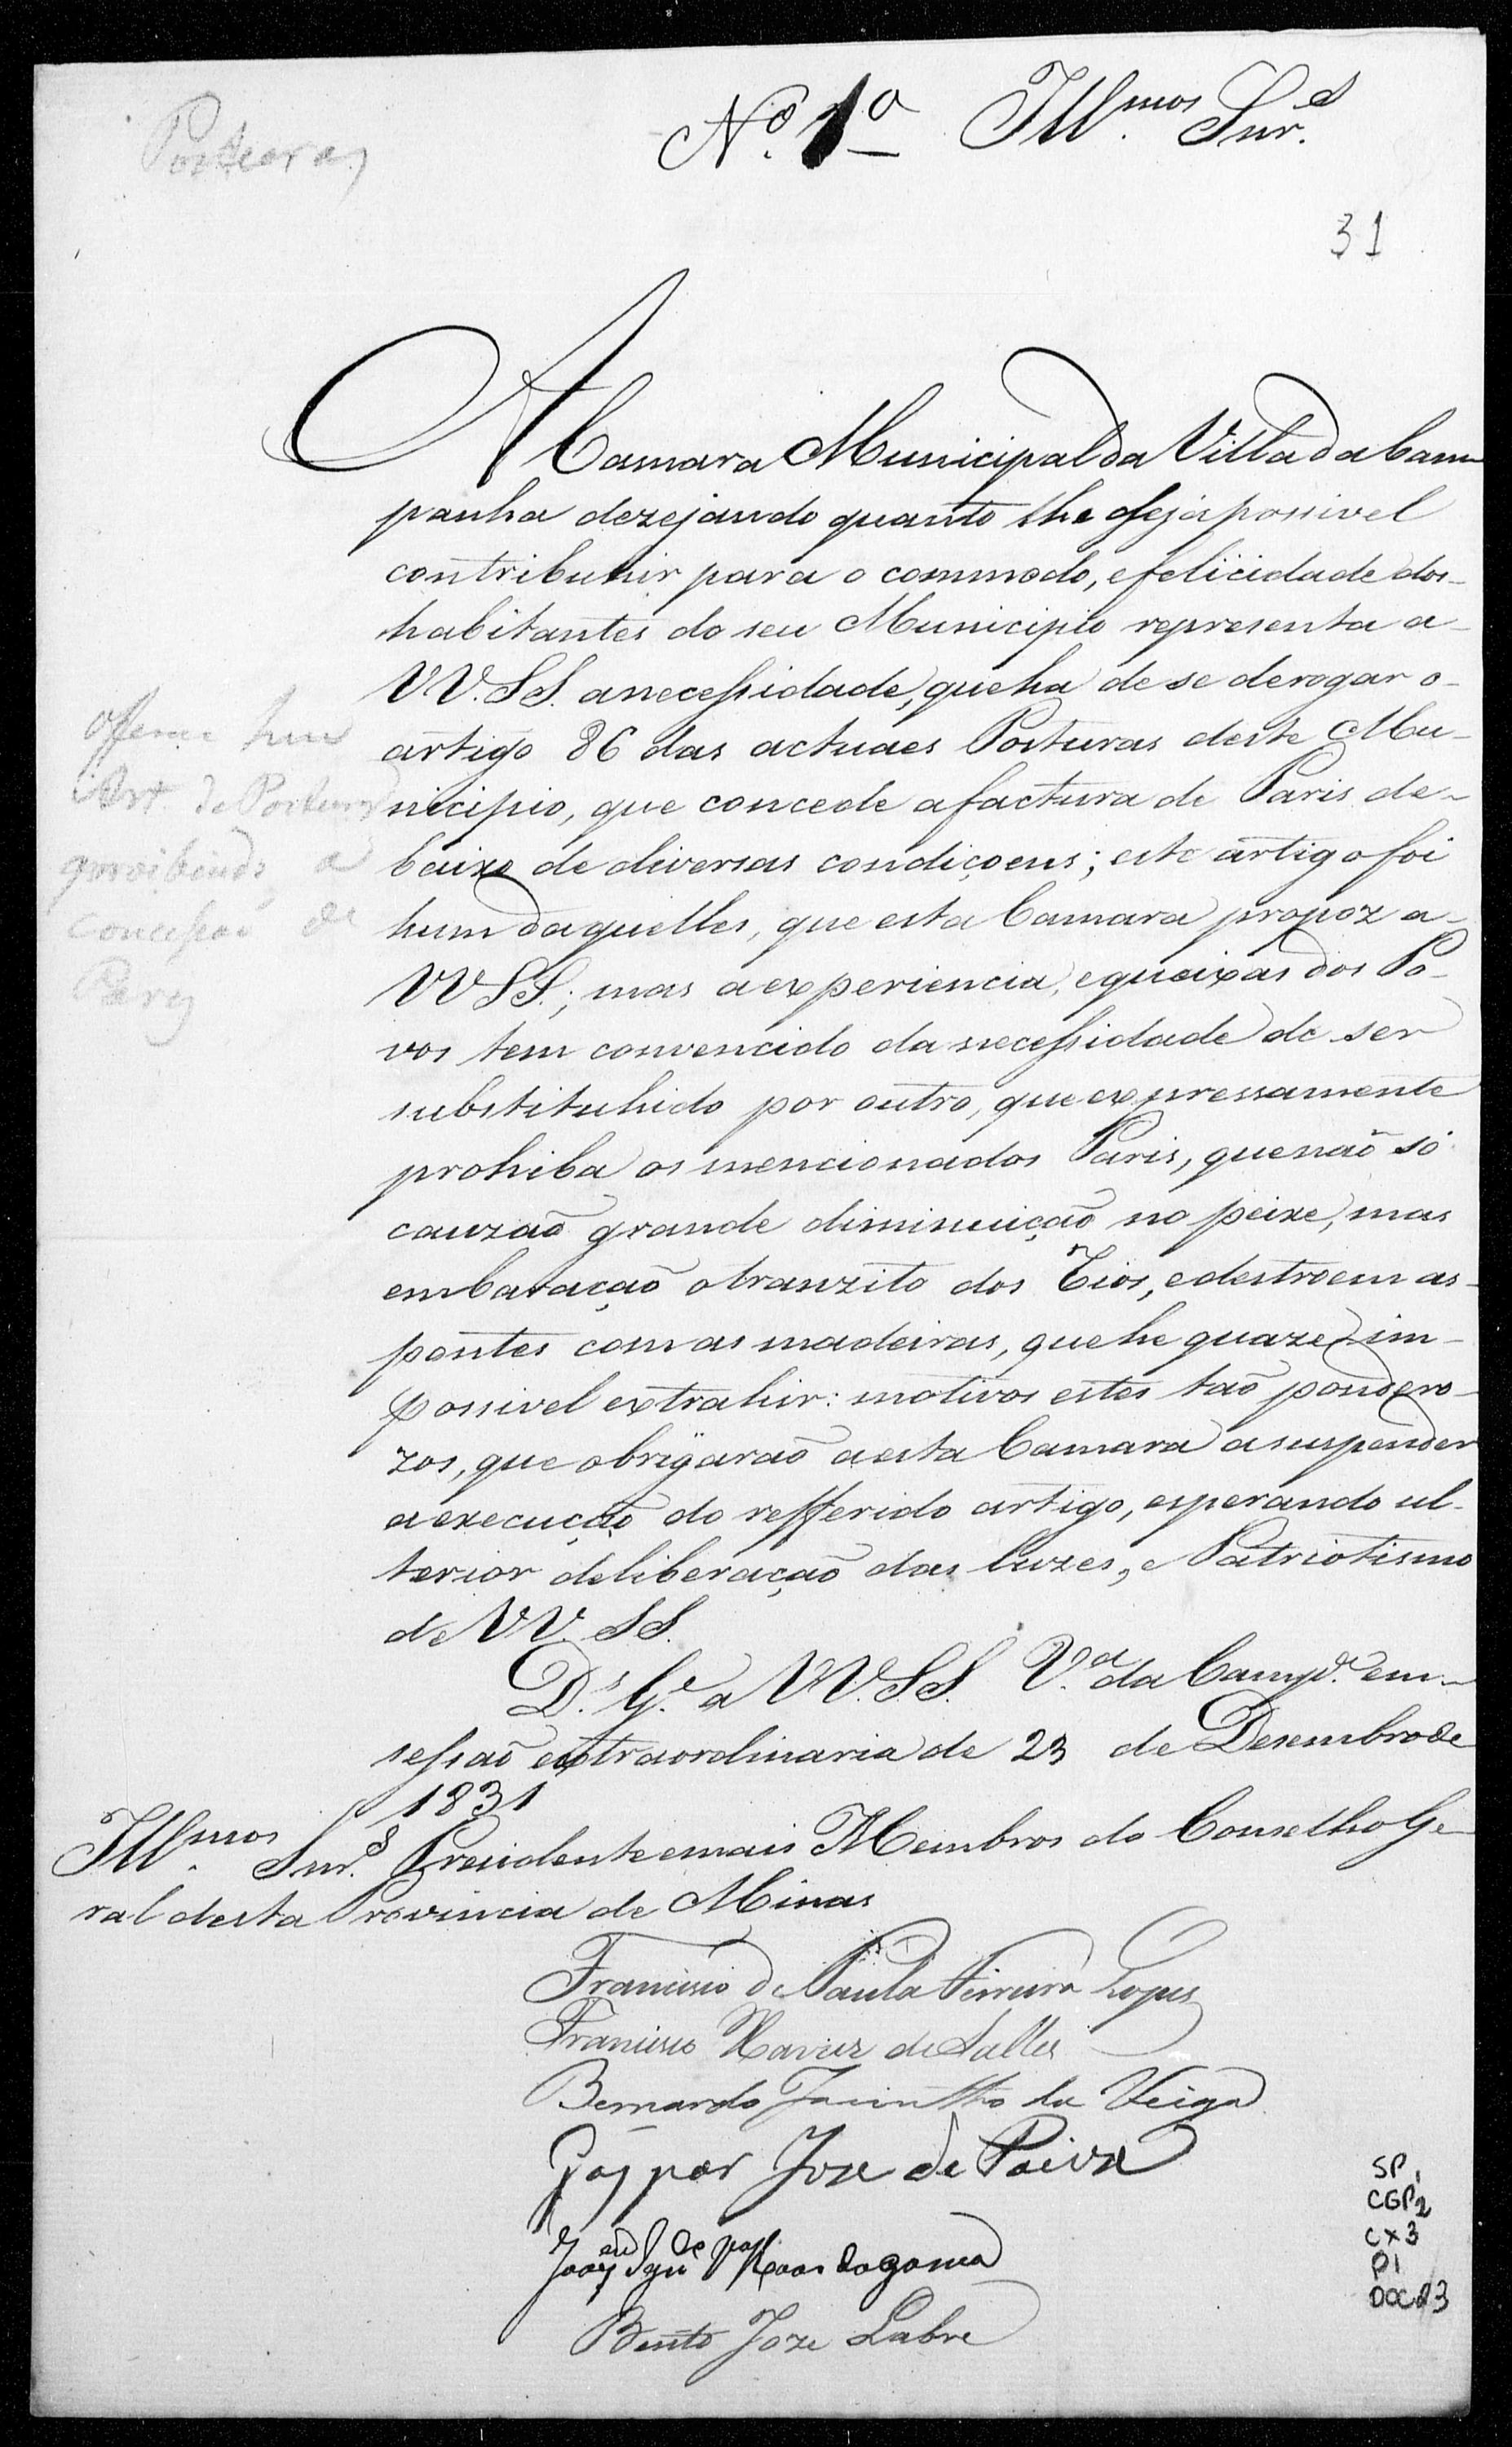 Posturas
Nº. 1º Ill.mos Snr.es
31
A Camara Municipal da Villa da Cam
panha dezejando quanto lhe seja possivel
contribuhir para o commodo, e felicidade dos
habitantes do seu Municipio representa a
VV. SS. a necessidade, que ha de se derogar o
artigo 86 das actuaes Posturas deste Mu-
nicipio, que concede a factura de Paris de-
baixo de diversas condiçoens; este artigo foi
hum daquelles, que esta Camara propoz a
VV SS.; mas a experiencia, e queixas dos Po-
vos tem convencido da necessidade de ser
substituhido por outro, que expressamente
prohiba os mencionados Paris, que naõ só
cauzaõ grande diminuiçaõ no peixe, mas
embaraçaõ o tranzito dos Rios, e destroem as
pontes com as madeiras, que he quaze im-
possivel extrahir: motivos estes taõ pondero-
zos, que obrigaraõ a esta Camara a suspender
a execuçaõ do refferido artigo, esperando ul-
terior deliberaçaõ das luzes, e Patriotismo
de VV. SS.
D.s G.e a VV. SS. V.a da Camp.a em
sessaõ extraordinaria de 23 de Desembro de
1831
Ill.mos Snr.s Presidente e mais Membros do Conselho Ge-
ral desta Provincia de Minas
Offerece hum
Art. de Posturas
proibindo a
concessaõ de
Parys
Francisco de Paula Ferreira Lopes
Francisco Xavier de Salles
Bernardo Jacintho da Veiga
Gaspar Jose de Paiva
Bento Joze Labre
SP
CGP2
CX3
P1
DOC23